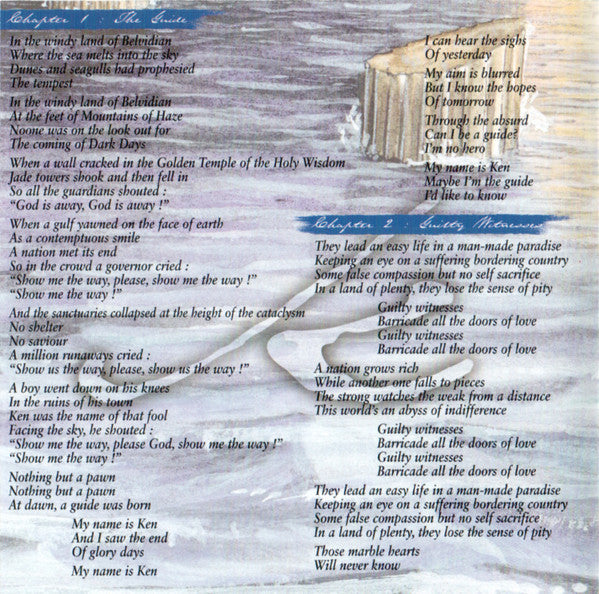 Chapter 1 : The Guide
In the windy land of Belvidian
Where the sea melts into the sky
Dunes and seagulls had prophesied
The tempest
In the windy land of Belvidian
At the feet of Mountains of Haze
Noone was on the look out for
The coming of Dark Days
When a wall cracked in the Golden Temple of the Holy Wisdom
Jade towers shook and then fell in
So all the guardians shouted :
“God is away, God is away !”
When a gulf yawned on the face of earth
As a contemptuous smile
A nation met its end
So in the crowd a governor cried :
“Show me the way, please, show me the way !”
“Show me the way !”
And the sanctuaries collapsed at the height of the cataclysm
No shelter
No saviour
A million runaways cried :
“Show us the way, please, show us the way !”
A boy went down on his knees
In the ruins of his town
Ken was the name of that fool
Facing the sky, he shouted :
“Show me the way, please God, show me the way !”
“Show me the way !”
Nothing but a pawn
Nothing but a pawn
At dawn, a guide was born
My name is Ken
And I saw the end
Of glory days
My name is Ken
I can hear the sighs
Of yesterday
My aim is blurred
But I know the hopes
Of tomorrow
Through the absurd
Can I be a guide?
I'm no hero
My name is Ken
Maybe I'm the guide
I'd like to know
Chapter 2 : Guilty Witnesses
They lead an easy life in a man-made paradise
Keeping an eye on a suffering bordering country
Some false compassion but no self sacrifice
In a land of plenty, they lose the sense of pity
Guilty witnesses
Barricade all the doors of love
Guilty witnesses
Barricade all the doors of love
A nation grows rich
While another one falls to pieces
The strong watches the weak from a distance
This world's an abyss of indifference
Guilty witnesses
Barricade all the doors of love
Guilty witnesses
Barricade all the doors of love
They lead an easy life in a man-made paradise
Keeping an eye on a suffering bordering country
Some false compassion but no self sacrifice
In a land of plenty, they lose the sense of pity
Those marble hearts
Will never know